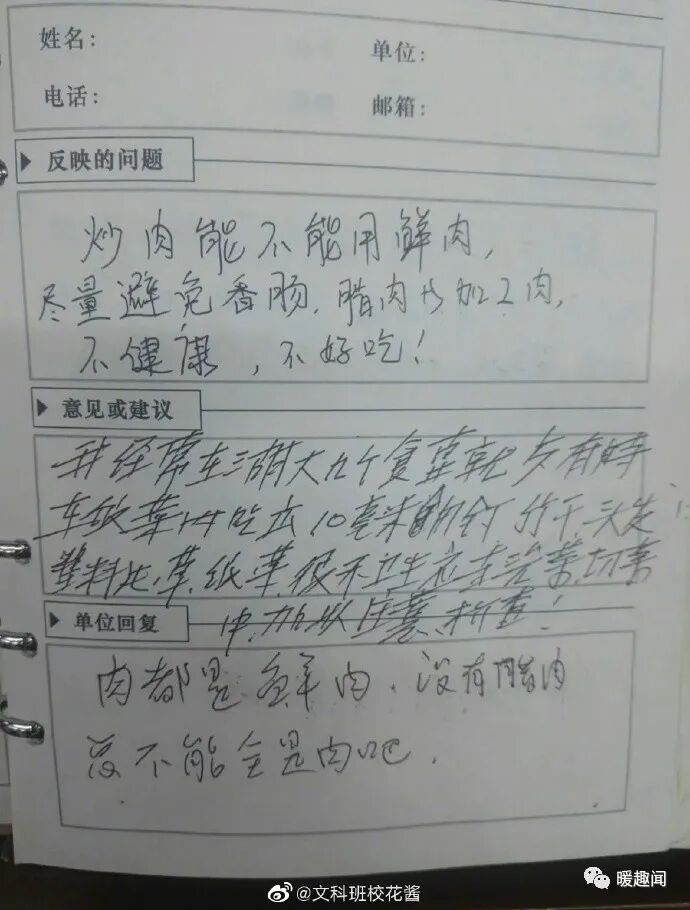 姓名: 单位:
电话: 邮箱:
反映的问题
炒肉能不能用鲜肉,
尽量避免香肠,腊肉等加工肉,
不健康,不好吃!
意见或建议
我经常在三湖大九个食堂就
车饮菜 吃出10毫米 钉 竹干 头发
塑料 草.纸 很不卫生应在洗菜.切菜
中.加以注意.检查!
单位回复
肉都是鲜肉.没有腊肉
总不能全是肉吧.
@文科班校花酱
暖趣闻